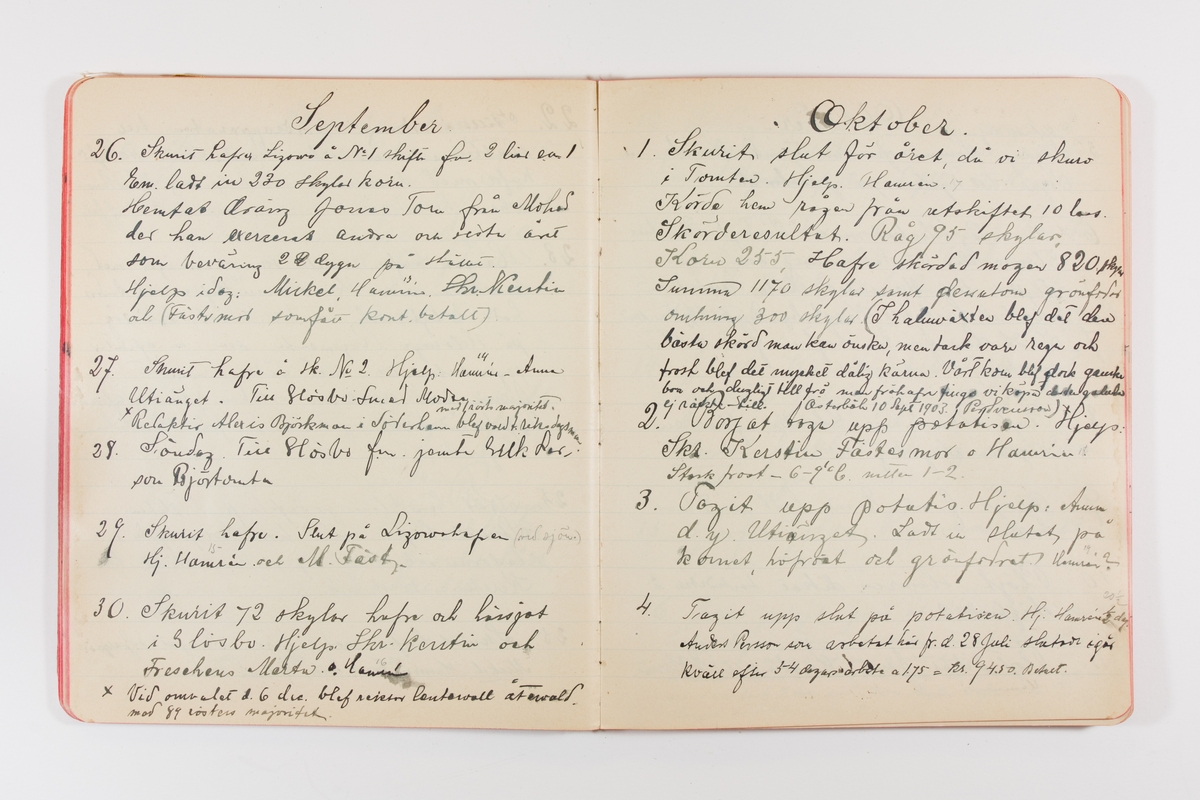 September
26. Skurit hafre Lizowo å No 1 skifte fm. 2 liar em 1
Em. ladt in 230 skylar korn.
Hemtat Jonas Torn från Mohed
der han exercerat andra och sista året
som beväring 22 dygn på stället.
Hjelp idag: Mickel, Hamrin, Skr. Kerstin
och (Fästmor som fått kont. betalt)
27. Skurit hafre å sk. No 2. Hjelp: Hamrin - Anna
Utiänget. Till Glösbo
med rösts majoritet.
x Redaktör Alexis Björkman i Söderhamn blef vald t. riksdagsman
28. Söndag. Till Glösbo fm. jemte Erik Lar-
son Björtomta
29. Skurit hafre. Slut på Lizowohafren (vid sjön)
15
Hj. Hamrin och M. Fäst
30. Skurit 72 skylar hafre och hässjat
i Glösbo. Hjelp Skr. Kerstin och
16
Freschens Marta o. Hamrin
x Vid omvalet d. 6 dec. blef rektor återvald.
med 89 rösters majoritet.
Oktober.
1. Skurit slut för året, då vi skuro
i Tomten. Hjelp. Hamrin. 17
Körde hem rågen från utskiftet 10 lass.
Skörderesultat. Råg 95 skylar,
Korn 255, Hafre skördad mogen 820 skylar
Summa 1170 skylar samt dessutom grönfoder
omkring 300 skylar. (I halmväxten blef det den
bästa skörd man kan önska, men tack vare regn och
frost blef det mycket dålig kärna. Vårt korn blef dock ganska
bra och dugligt till frö men fröhafre få vi köpa
ej räckte till. (Österbäck 10 Sept 1903. )
2. Börjat taga upp potatisen. Hjelp:
Skr. Kerstin Fästesmor o Hamrin 18
Stark frost - 6-9° C. natten 1-2.
3. Tagit upp potatis. Hjelp: Anna
d. y. Utiänget. Ladt in slutet på
kornet, höfröet och grönfodret. Hamrin
4. Tagit upp slut på potatisen. Hj. Hamrin ½ dag
Anders Persson som arbetat här fr. d. 28 Juli slutade igår
kväll efter 54 dagars arbete a 1,75 = Kr. 94.50. Betalt.